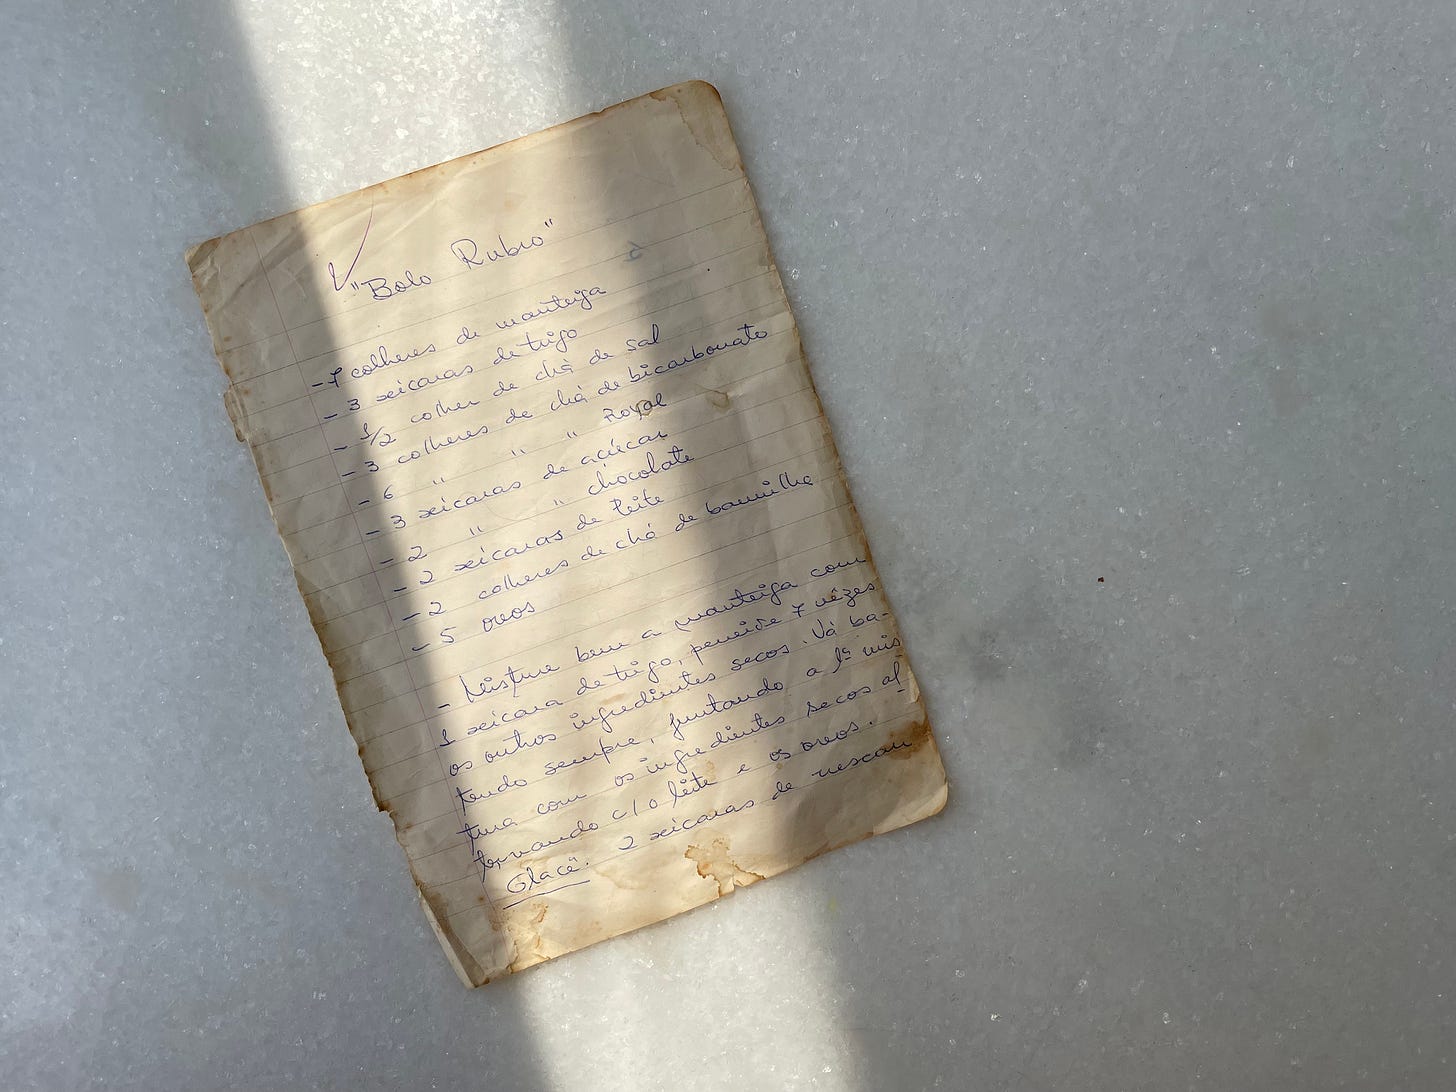 "Bolo Rubro"
- 7 colheres de manteiga
- 3 xeícaras de trigo
- 1/2 colher de chá de sal
- 3 colheres de chá de bicarbonato
- 6 " " " Royal
- 3 xeícaras de açúcar
- 2 " " chocolate
- 2 xeícaras de leite
- 2 colheres de chá de baunilha
- 5 ovos
- Misture bem a manteiga com
1 xeícara de trigo, peneire 7 vêzes
os outros ingredientes secos. Vá ba-
tendo sempre, juntando a 1ª mis
tura com os ingredientes secos al
ternando c/ o leite e os ovos.
Glacê: 2 xeícaras de